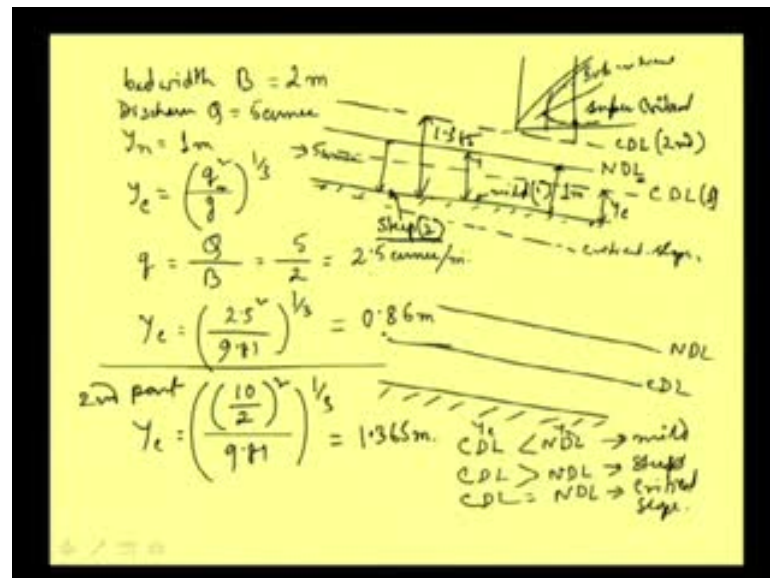 bedwidth B = 2m
Discharge Q = 5cumec
Yn = 1m
Yc = (q²/g)^1/3
q = Q/B = 5/2 = 2.5 cumec/m.
Yc = (2.5²/9.81)^1/3 = 0.86m
2nd part
Yc = ((10/2)²/9.81)^1/3 = 1.365m.
super critical
CDL (2nd)
NDL
1.365
mild (1)
1m
Yc
steep (2)
critical slope.
NDL
CDL
Yc Yn
CDL < NDL → mild
CDL > NDL → steep
CDL = NDL → critical
slope.